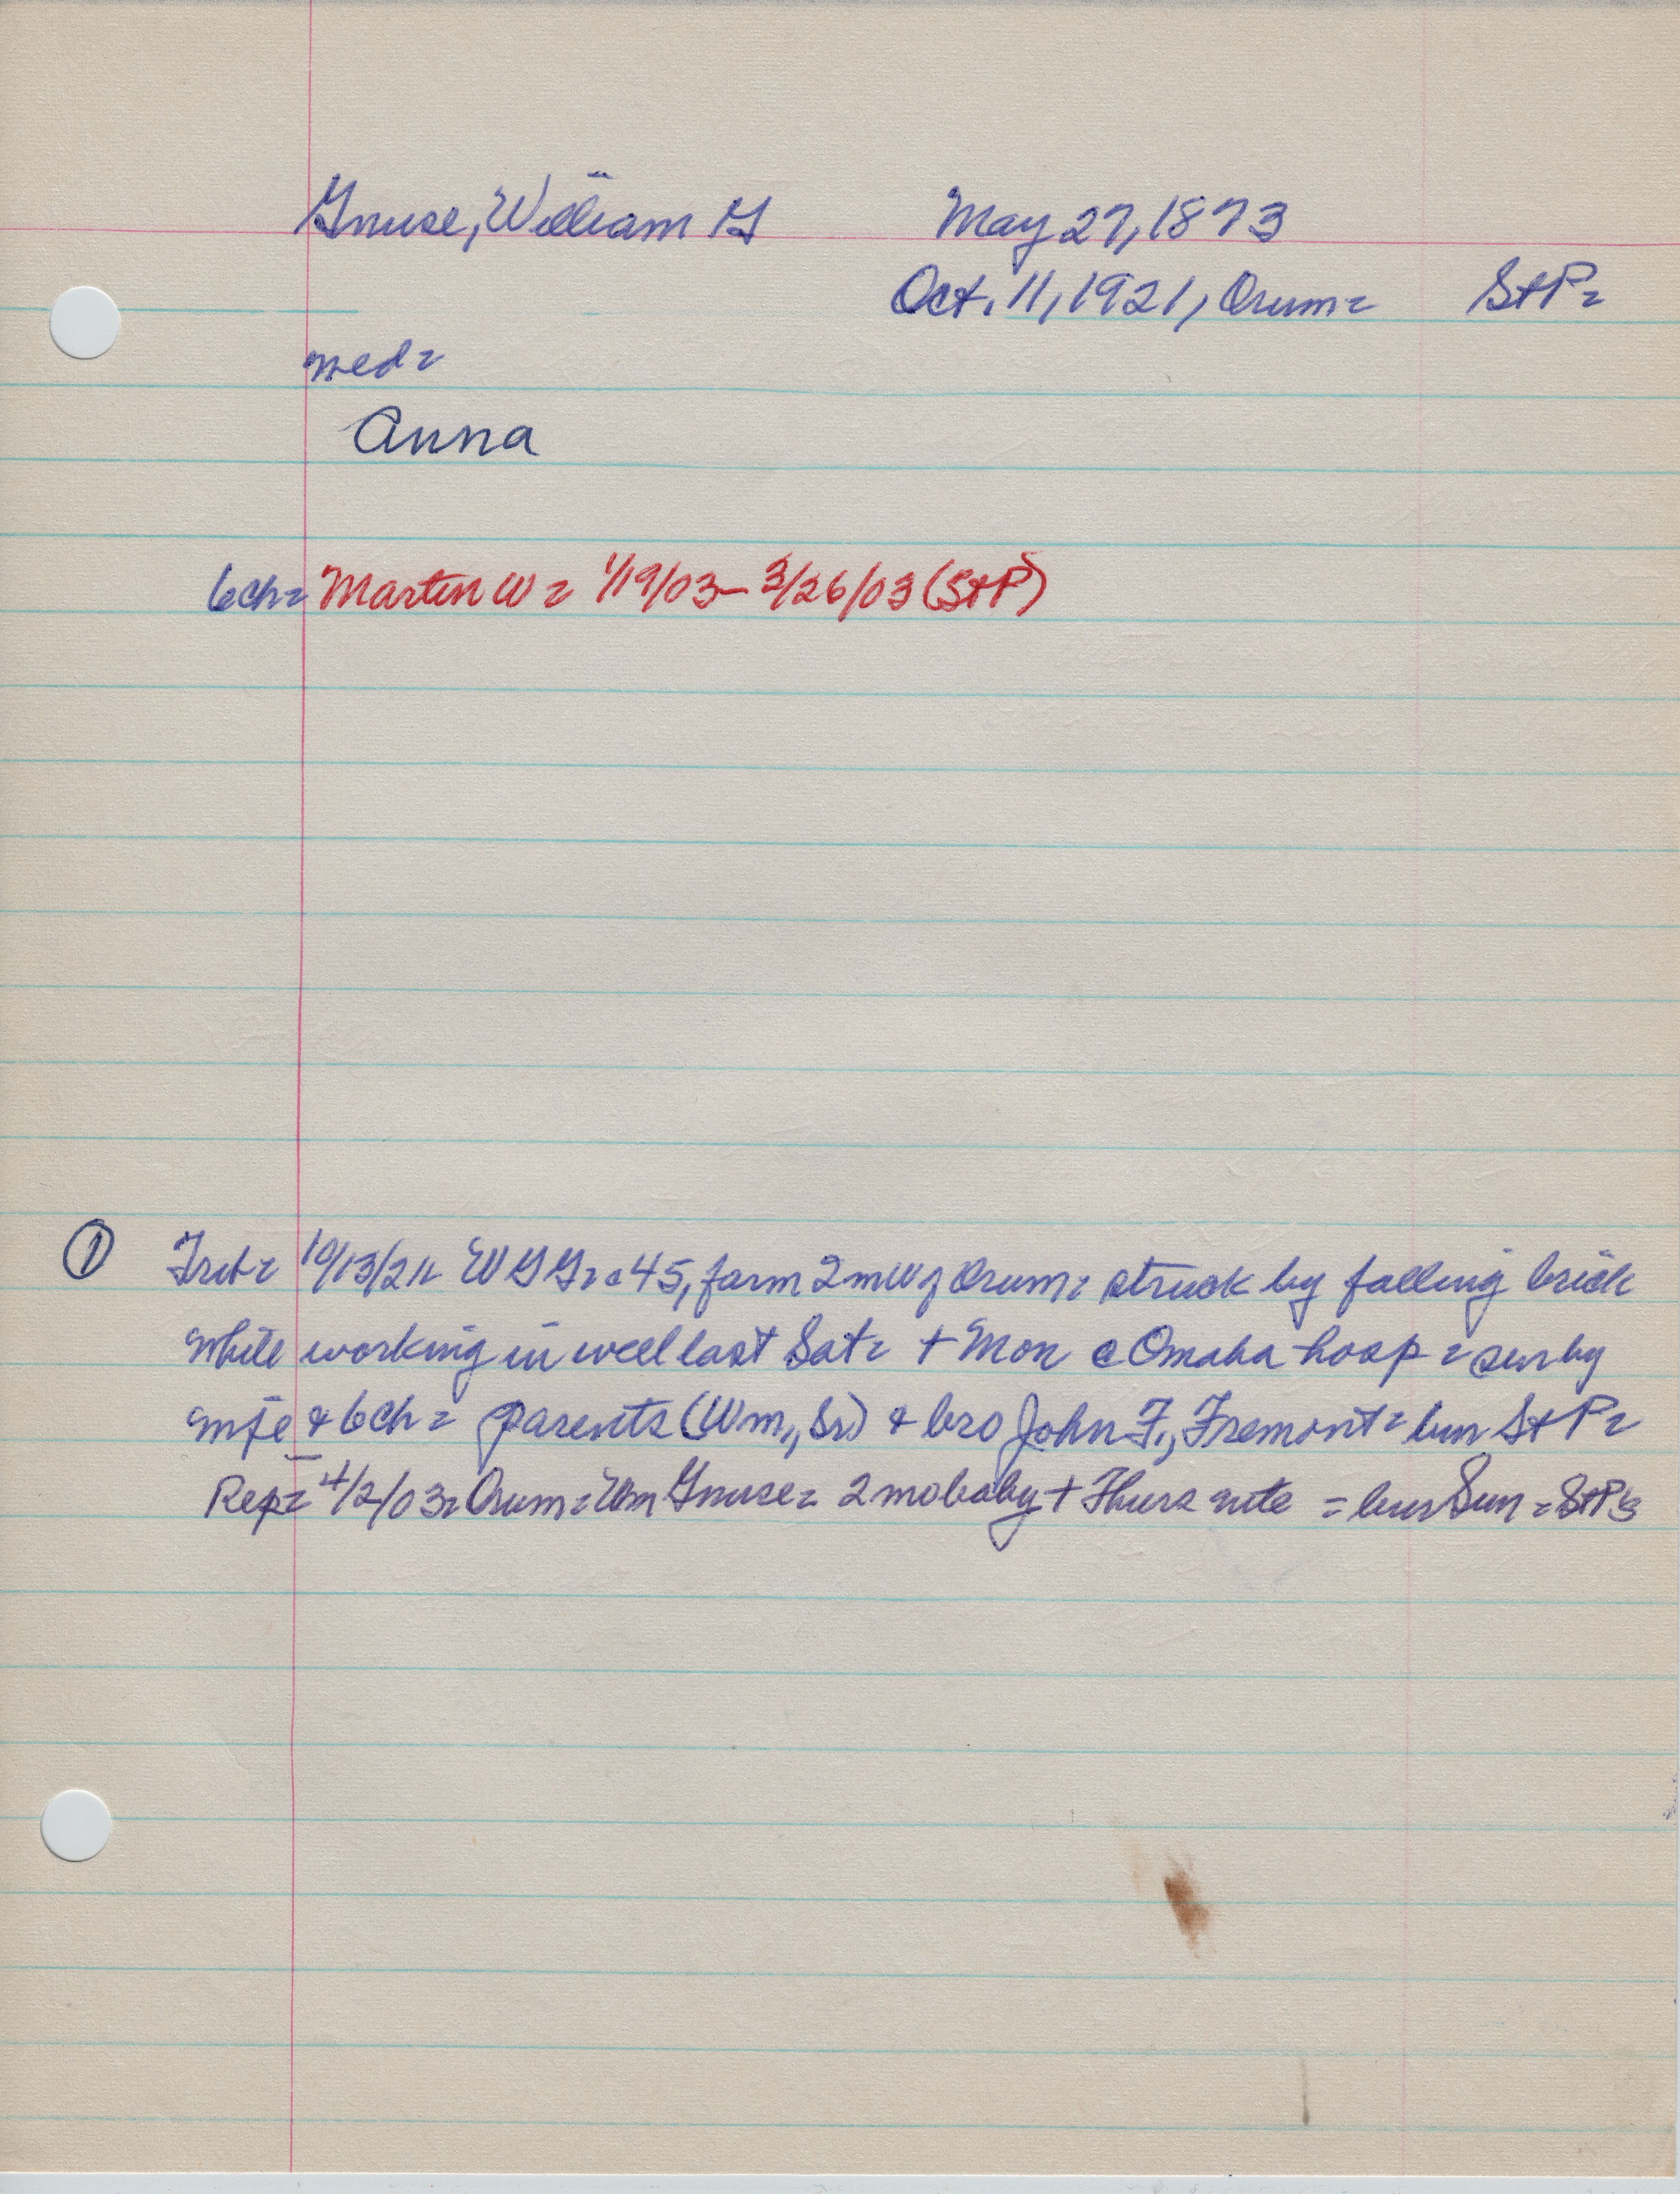 Gnuse, William G May 27, 1873
Oct. 11, 1921, Orum= StP=
med=
Anna
6ch= Martin W = 1/19/03 - 3/26/03 (StP)
① Trib= 10/13/21= WGG= a 45, farm 2mW of Orum= struck by falling brick
while working in well last Sat= + Mon @ Omaha hosp = sur by
wife & 6ch = parents (Wm, Sr) & bro John F., Fremont = bur StP=
Rep= 4/2/03= Orum= Wm Gnuse= 2 mo baby + Thurs nite = bur Sun = StP's